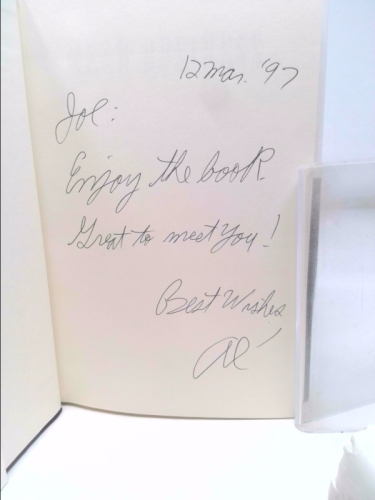 12 Mar. '97
Joe:
Enjoy the book.
Great to meet you!
Best Wishes
Al